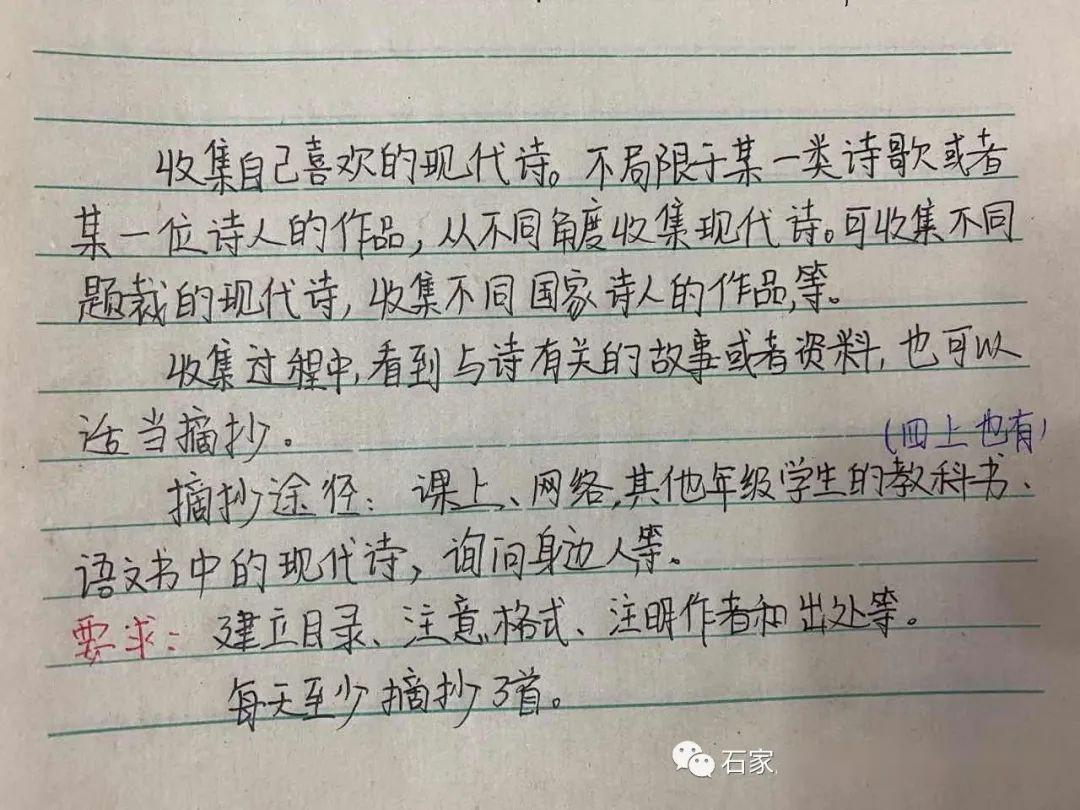 收集自己喜欢的现代诗。不局限于某一类诗歌或者
某一位诗人的作品，从不同角度收集现代诗。可收集不同
题裁的现代诗，收集不同国家诗人的作品,等。
收集过程中,看到与诗有关的故事或者资料，也可以
适当摘抄。
(四上也有)
摘抄途径：课上、网络,其他年级学生的教科书、
语文书中的现代诗，询问身边人,等。
要求：建立目录、注意,格式、注明作者和出处等。
每天至少摘抄3首。
石家